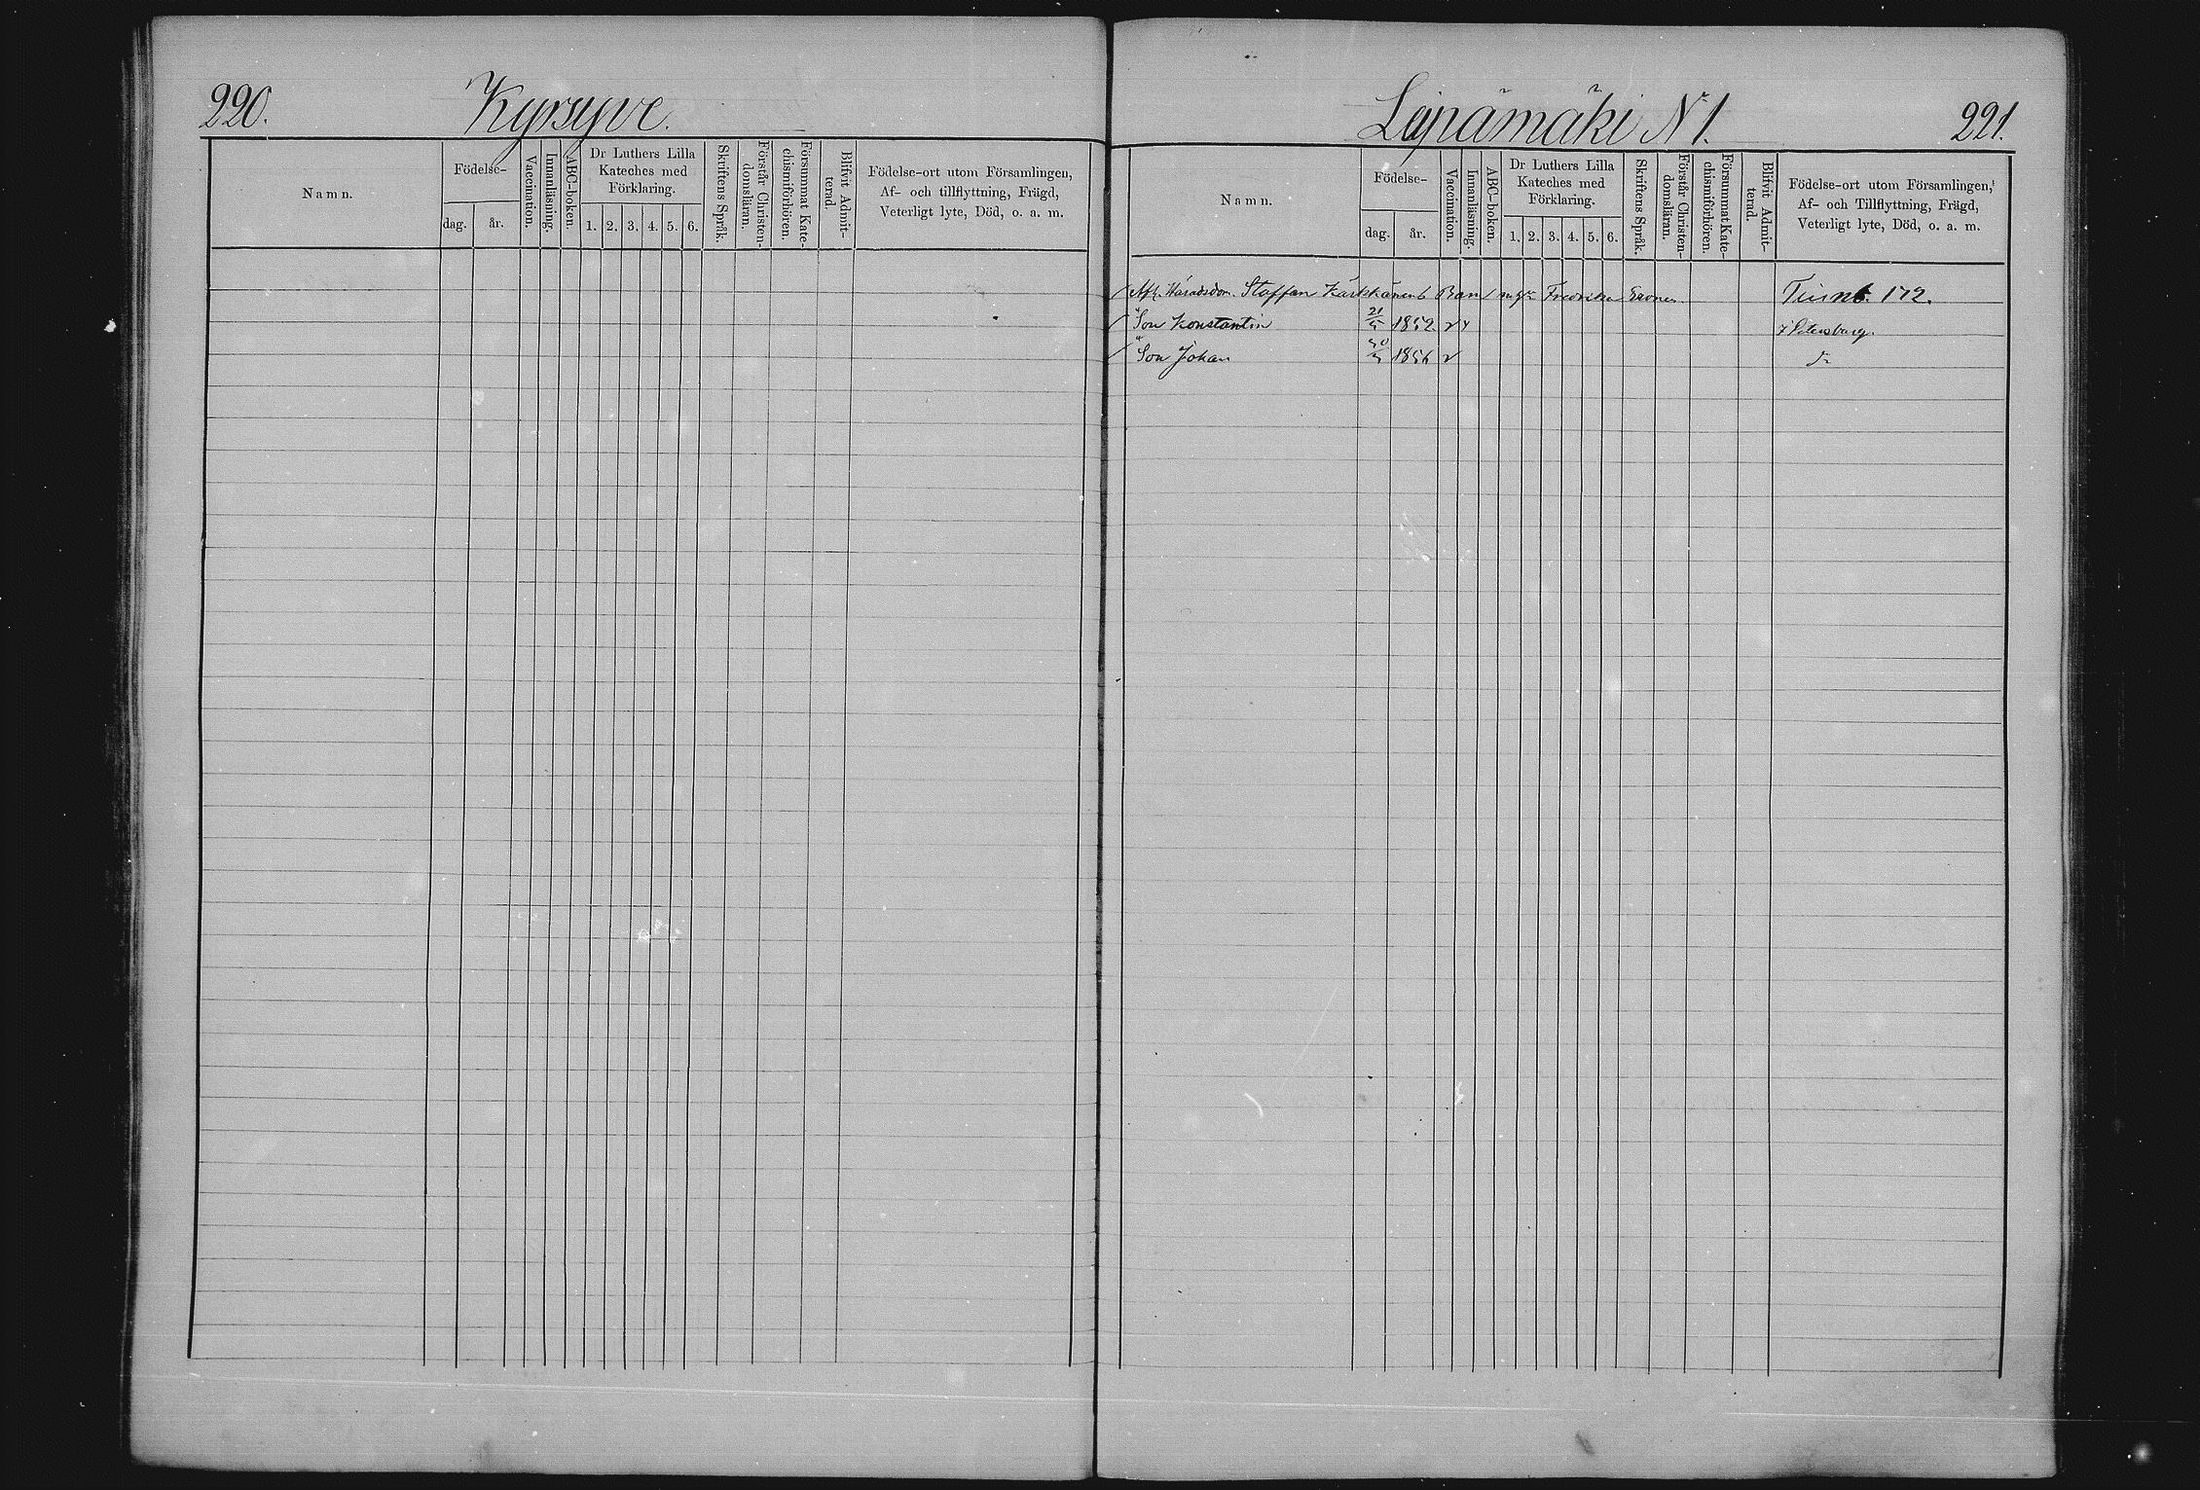 220.
Kyrsyve.
Namn.
Födelse-
dag.
år.
Vaccination.
Innanläsning.
ABC-boken.
Dr Luthers Lilla
Kateches med
Förklaring.
1. 2. 3. 4. 5. 6.
Skriftens Språk.
Förstår Christen-
domsläran.
Försummat Kate-
chismiförhören.
Blifvit Admit-
terad.
Födelse-ort utom Församlingen,
Af- och tillflyttning, Frägd,
Veterligt lyte, Död, o. a. m.
Lepämäki N 1.
221.
Namn.
Födelse-
dag.
år.
Vaccination.
Innanläsning.
ABC-boken.
Dr Luthers Lilla
Kateches med
Förklaring.
1. 2. 3. 4. 5. 6.
Skriftens Språk.
Förstår Christen-
domsläran.
Försummat Kate-
chismiförhören.
Blifvit Admit-
terad.
Födelse-ort utom Församlingen,
Af- och Tillflyttning, Frägd,
Veterligt lyte, Död, o. a. m.
Staffan Barn 172.
Son Konstantin 21/5 1852 i Petersburg.
Son Johan 1856